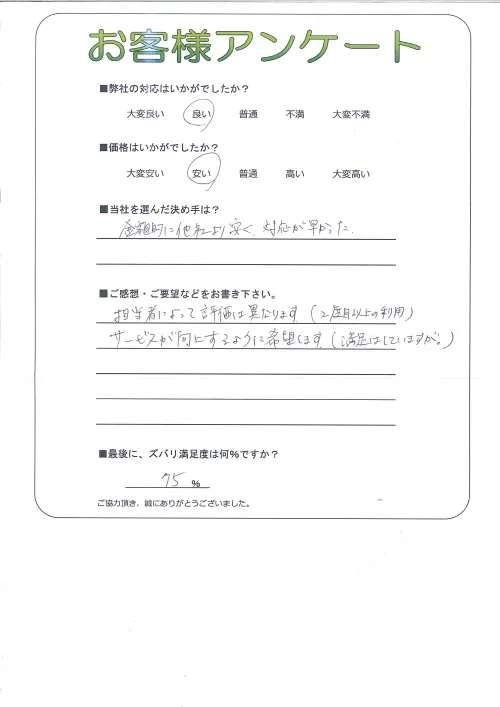 お客様アンケート
■弊社の対応はいかがでしたか？
大変良い 良い 普通 不満 大変不満
■価格はいかがでしたか？
大変安い 安い 普通 高い 大変高い
■当社を選んだ決め手は？
金額的に他社より安く、対応が早かった.
■ご感想・ご要望などをお書き下さい。
担当者によって評価は異なります（2度目以上の利用）
サービスが向上するように希望します.（満足はしていますが。）
■最後に、ズバリ満足度は何％ですか？
75 %
ご協力頂き、誠にありがとうございました。